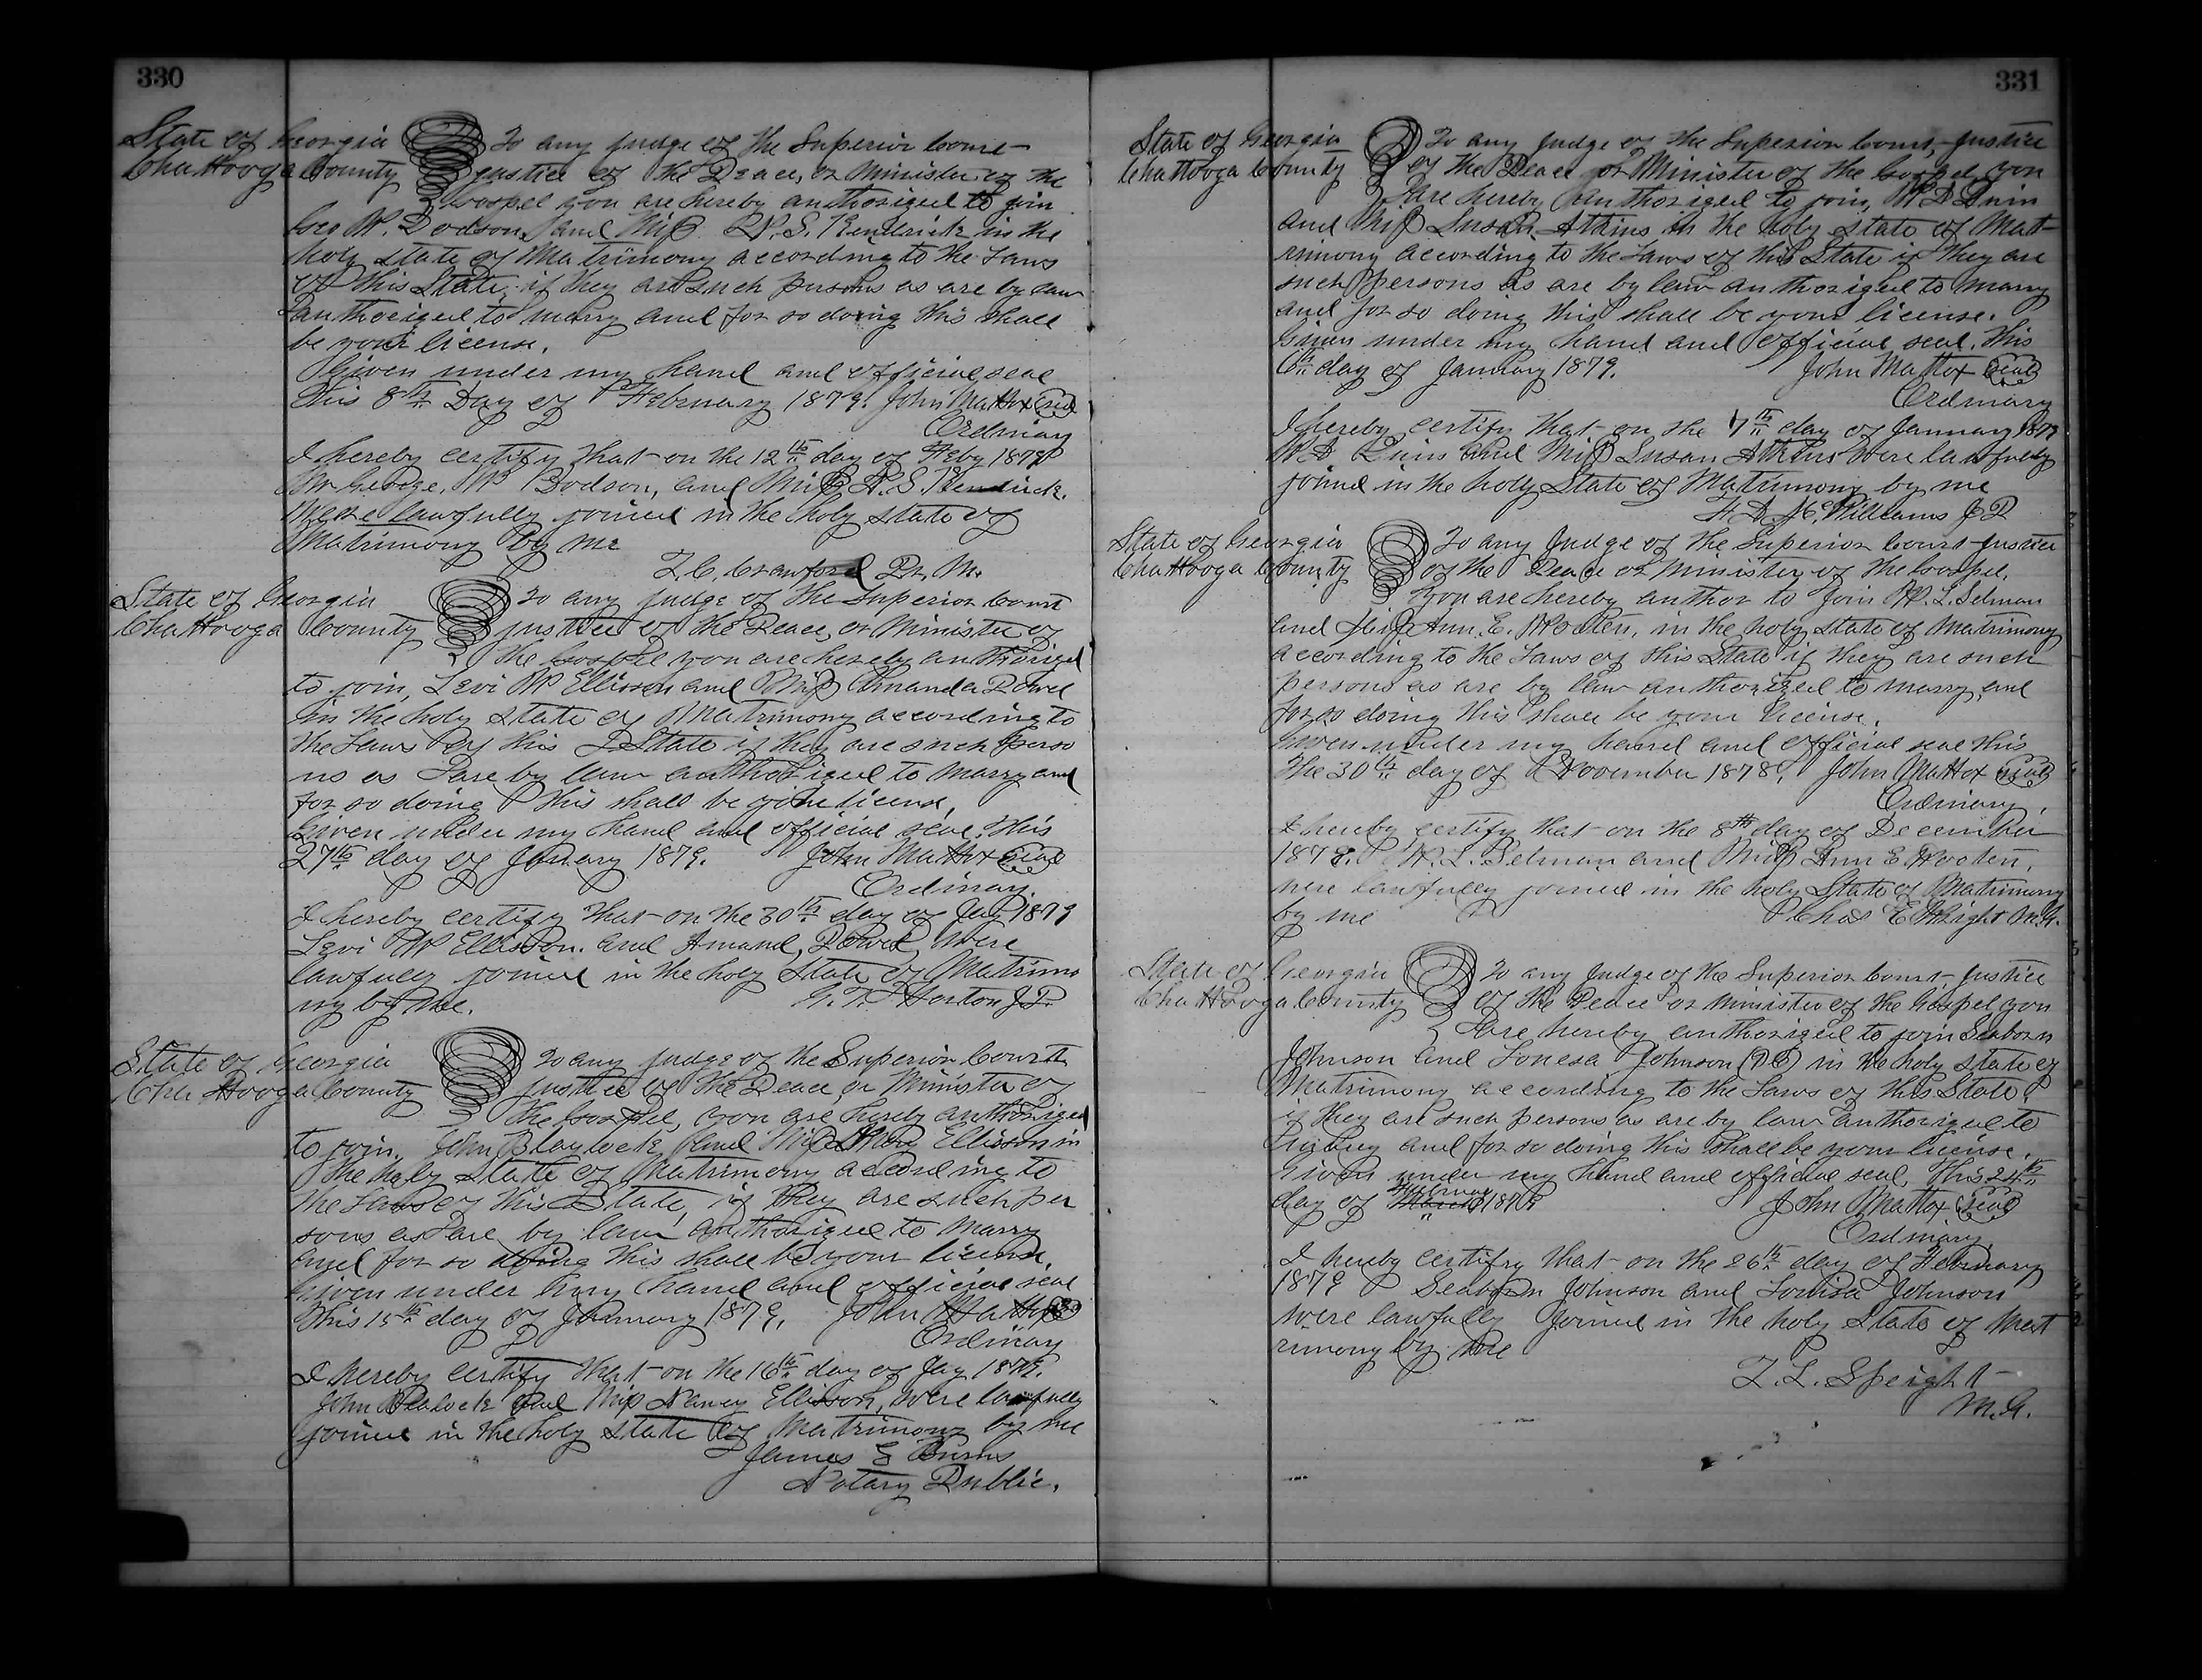 330
State of Georgia To any Judge of the Superior Court
Chattooga County Justice of the Peace, or Minister of the
Gospel you are hereby authorized to join
Geo W. Dodson, and Miss N. S. Kendrick in the
holy state of Matrimony according to the Laws
of this State, if they are such persons as are by law
authorized to marry and for so doing this shall
be your license.
Given under my hand and official seal
This 8th Day of February 1879. John Mattox Seal
Ordinary
I hereby certify that on the 12th day of Feby 1879
Mr George, W Dodson, and Miss N. S. Kendrick.
Were lawfully joined in the holy state of
Matrimony by me
T. C. Crawford Pr. M.
State of Georgia To any Judge of the Superior Court
Chattooga County Justice of the Peace, or Minister of
the Gospel you are hereby authorized
to join, Levi W Ellison and Miss Amanda Powel
in the holy state of Matrimony according to
the Laws of this State if they are such perso
ns as are by law authorized to marry and
for so doing this shall be your license.
Given under my hand and official seal. This
27th day of January 1879. John Mattox Seal
Ordinary.
I hereby certify that on the 30th day of Jay 1879
Levi W Ellison. and Amand, Powel Were
lawfully joined in the holy State of Matrimo
ny by me. Horton J.P.
State of Georgia To any Judge of the Superior Court
Chattooga County Justice of the Peace or Minister of
the Gospel, you are hereby authorized
to join. John Blaylock, and Miss Ellison in
the holy State of Matrimony according to
the Laws of this State, if they are such per
sons as are by law authorized to marry
and for so doing this shall be your license,
Given under my hand and official seal
This 15th day of January 1879, John Mattox
Ordinary
I hereby certify that on the 16th day of Jay 1879.
John Blalock and Miss Nancy Ellison, were lawfully
joined in the holy state of Matrimony by me
James E Burns
Notary Public.
331
State of Georgia To any Judge of the Superior Court, Justice
Chattooga County of the Peace or Minister of the Gospel you
are hereby authorized to join, W D
and Miss Susan Atkins in the holy state of Mat
rimony according to the Laws of this State if they are
such persons as are by law authorized to marry
and for so doing this shall be your license.
Given under my hand and official seal, this
6th day of January 1879. John Mattox Seal
Ordinary
I hereby certify that on the 7th day of January 1879
W. D and Miss Susan Atkins were lawfully
joined in the holy State of Matrimony by me
McWilliams J P
State of Georgia To any Judge of the Superior Court Justice
Chattooga County of the Peace or Minister of the Gospel,
You are hereby author to join W. L. Selman
and Miss Ann. E. Wooten, in the holy state of Matrimony
according to the Laws of this State if they are such
persons as are by law authorized to marry, and
for so doing this shall be your license.
Given under my hand and official seal this
the 30th day of November 1878. John Mattox Seal
Ordinary.
I hereby certify that on the 8th day of December
1878. W. L. Selman and Miss Ann E Wooten,
were lawfully joined in the holy State of Matrimony
by me Chas E Wright M.G.
State of Georgia To any Judge of the Superior Court, Justice
Chattooga County of the Peace or Minister of the Gospel you
are hereby authorized to join Seaborn
Johnson and Lonesa Johnson in the holy state of
Matrimony according to the Laws of this State
if they are such persons as are by law authorized to
marry and for so doing this shall be your license.
Given under my hand and official seal, This 24th
day of February March 1879 John Mattox Seal
Ordinary.
I hereby certify that on the 26th day of February
1879 Seaborn Johnson and Louisa Johnson
were lawfully Joined in the holy State of Mat
rimony by me
T. L. Speight
M.G.